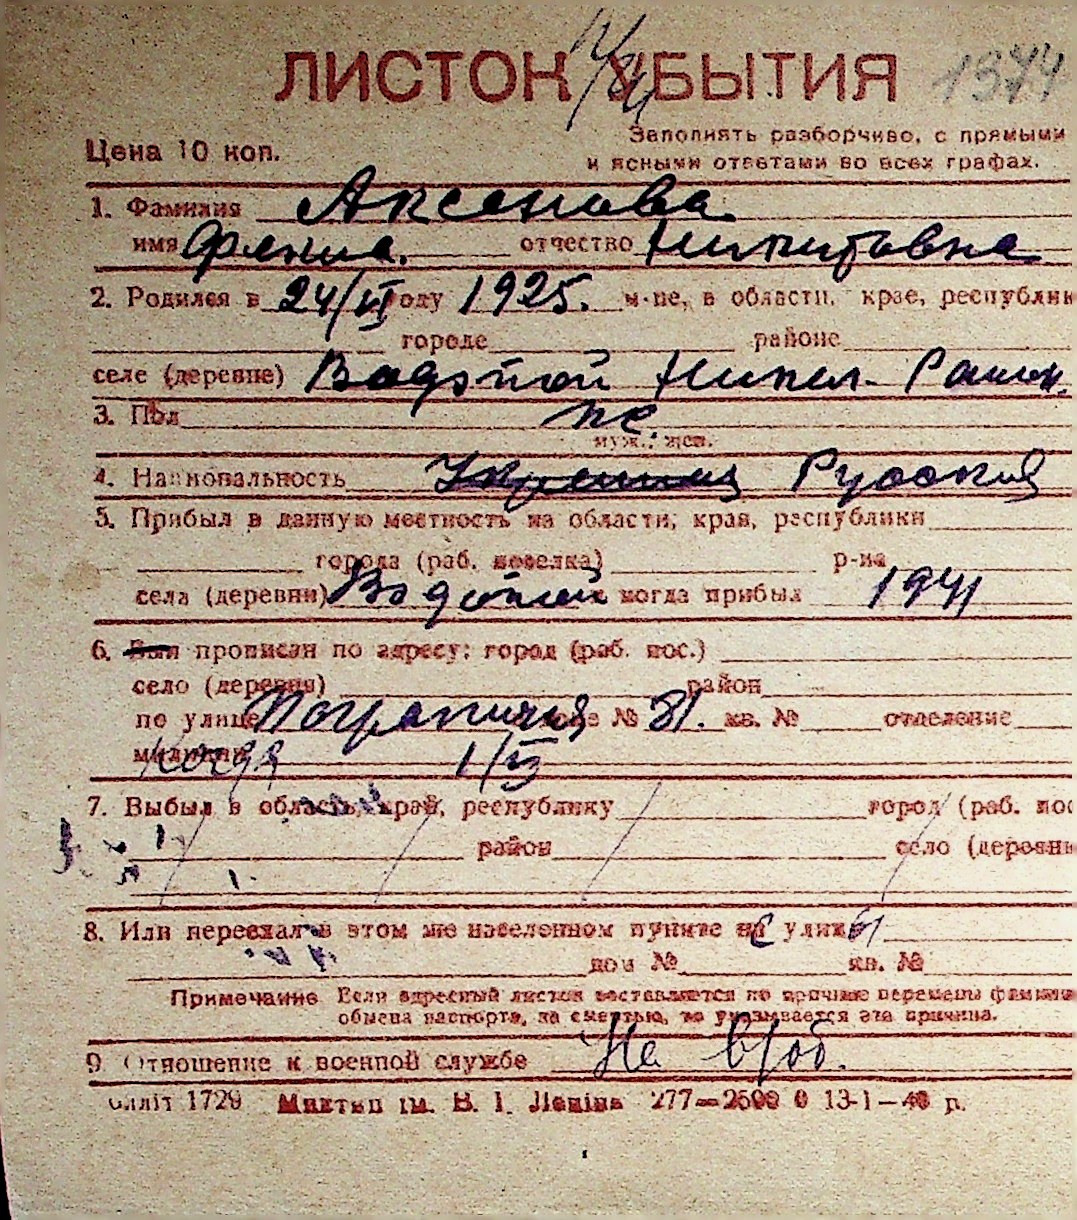 ЛИСТОК УБЫТИЯ 1374
Цена 10 коп.
Заполнять разборчиво, с прямыми
и ясными ответами во всех графах.
1. Фамилия Аксенова
имя Фения. отчество Никитовна
2. Родился в 24/VI году 1925. м-це, в области, крае, республик
городе районе
селе (деревне) Водопой Никол. Раион.
3. Пол же
муж., жен.
4. Национальность Русская
5. Прибыл в данную местность из области, края, республики
города (раб. поселка) р-на
села (деревни) Водопой когда прибыл 1941
6. Был прописан по адресу: город (раб. пос.)
село (деревня) район
по улице Пограничная доме № 81. кв. № отделение
милиции когда 1/IV
7. Выбыл в область, край, республику город (раб. пос
район село (деревнь
8. Или переехал в этом же населенном пункте на улицы
дом № кв. №
Примечание. Если адресный листок составляется по причине перемены фамилии
обмена паспорта, за смертью, то указывается эта причина.
9 Отношение к военной службе Не в/об.
блліт 1729 Миктип ім. В. І. Леніна 277—2500 0 13-1—40 р.